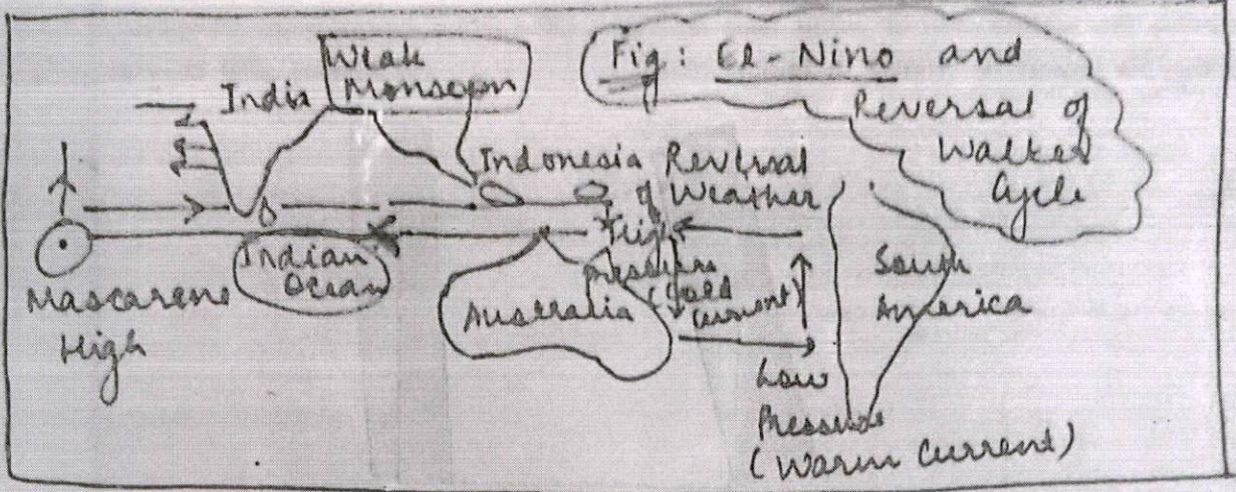 Fig: El-Nino and
Reversal of
Walker
Cycle
Weak
Monsoon
India
Indonesia
Reversal
of Weather
High
Pressure
(Cold
current)
Indian
Ocean
Mascarene
High
Australia
South
America
Low
Pressure
(Warm Current)